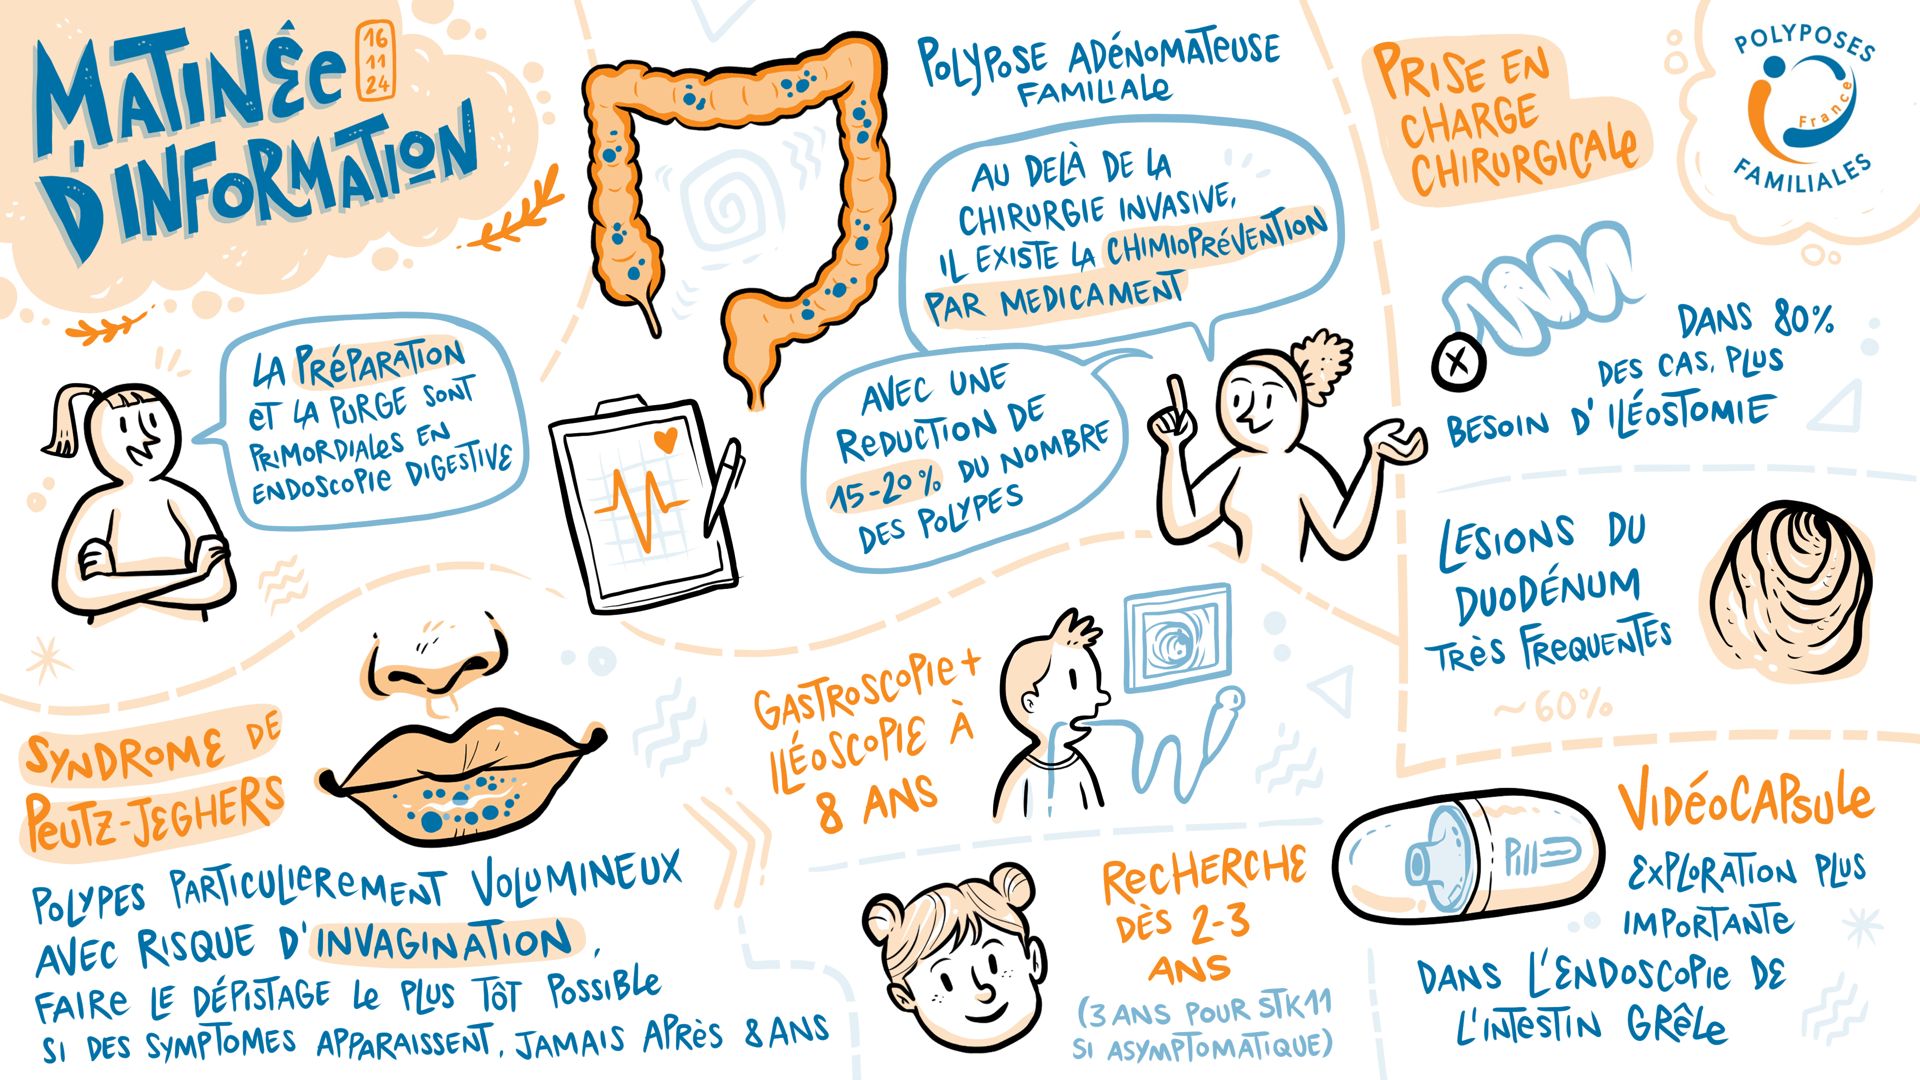 MATINÉE
D'INFORMATION
16
11
24
LA PRÉPARATION
ET LA PURGE SONT
PRIMORDIALES EN
ENDOSCOPIE DIGESTIVE
POLYPOSE ADÉNOMATEUSE
FAMILIALE
AU DELÀ DE LA
CHIRURGIE INVASIVE,
IL EXISTE LA CHIMIOPRÉVENTION
PAR MEDICAMENT
AVEC UNE
REDUCTION DE
15-20% DU NOMBRE
DES POLYPES
PRISE EN
CHARGE
CHIRURGICALE
POLYPOSES
France
FAMILIALES
DANS 80%
DES CAS, PLUS
BESOIN D'ILÉOSTOMIE
LESIONS DU
DUODÉNUM
TRÈS FREQUENTES
~60%
SYNDROME DE
PEUTZ-JEGHERS
POLYPES PARTICULIEREMENT VOLUMINEUX
AVEC RISQUE D'INVAGINATION,
FAIRE LE DÉPISTAGE LE PLUS TÔT POSSIBLE
SI DES SYMPTOMES APPARAISSENT, JAMAIS APRÈS 8 ANS
GASTROSCOPIE +
ILÉOSCOPIE À
8 ANS
RECHERCHE
DÈS 2-3
ANS
(3 ANS POUR STK11
SI ASYMPTOMATIQUE)
Pill
VIDÉOCAPSULE
EXPLORATION PLUS
IMPORTANTE
DANS L'ENDOSCOPIE DE
L'INTESTIN GRÊLE